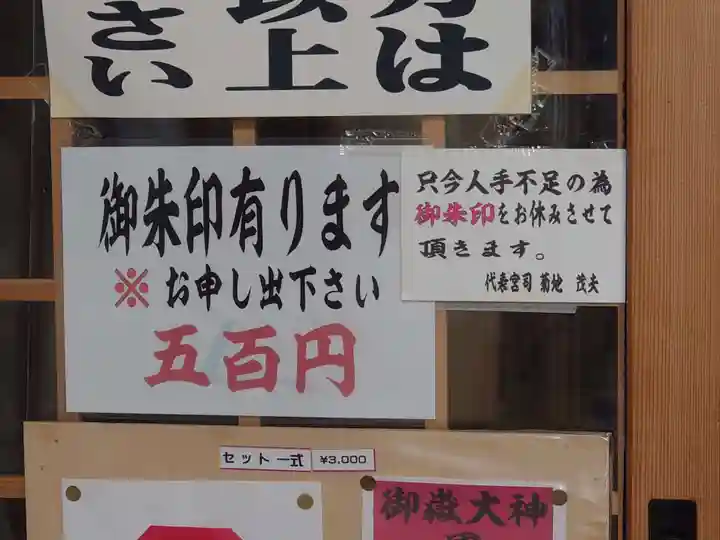 方は
以上
さい
御朱印有ります
※お申し出下さい
五百円
只今人手不足の為
御朱印をお休みさせて
頂きます。
代表宮司 菊地 茂夫
セット一式 ¥3,000
御嶽大神